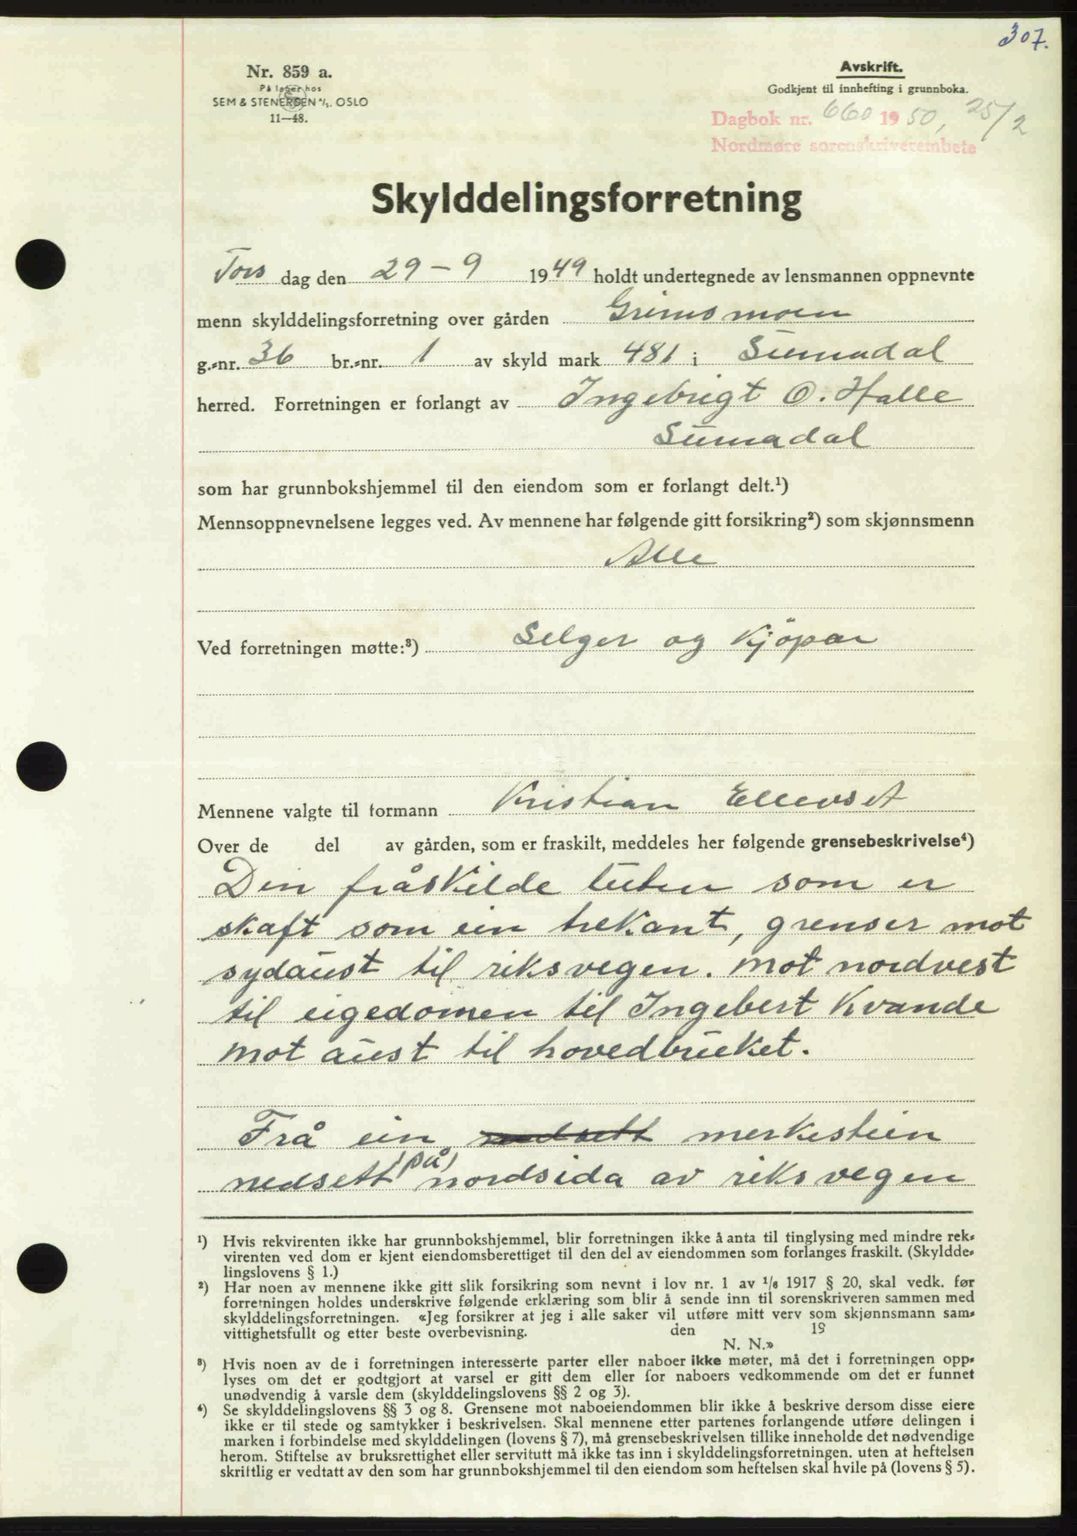 307.
Nr. 859 a.
På lager hos
SEM & STENERSEN A/S. OSLO
11—48.
Avskrift.
Godkjent til innhefting i grunnboka.
Dagbok nr. 660 1950, 25/2
Nordmøre sorenskriverembete
Skylddelingsforretning
Tors dag den 29 - 9 1949 holdt undertegnede av lensmannen oppnevnte
menn skylddelingsforretning over gården Grimsmoen
g.-nr. 36 br.-nr. 1 av skyld mark 481 i Surnadal
herred. Forretningen er forlangt av Ingebrigt O. Halle
Surnadal
som har grunnbokshjemmel til den eiendom som er forlangt delt.¹)
Mennsoppnevnelsene legges ved. Av mennene har følgende gitt forsikring²) som skjønnsmenn
Alle
Ved forretningen møtte:³) Selger og Kjöpar
Mennene valgte til formann Kristian Ellevset
Over de del av gården, som er fraskilt, meddeles her følgende grensebeskrivelse⁴)
Den fråskilde tuten som er
skaft som ein trekant, grenser mot
sydaust til riksvegen. Mot nordvest
til eigedomen til Ingebert Kvande
Mot aust til hovedbruket.
Frå ein nedsett merkestein
nedsett (på) nordsida av riksvegen
¹) Hvis rekvirenten ikke har grunnbokshjemmel, blir forretningen ikke å anta til tinglysing med mindre rek-
virenten ved dom er kjent eiendomsberettiget til den del av eiendommen som forlanges fraskilt. (Skyldde-
lingslovens § 1.)
²) Har noen av mennene ikke gitt slik forsikring som nevnt i lov nr. 1 av 1/6 1917 § 20, skal vedk. før
forretningen holdes underskrive følgende erklæring som blir å sende inn til sorenskriveren sammen med
skylddelingsforretningen. «Jeg forsikrer at jeg i alle saker vil utføre mitt verv som skjønnsmann sam-
vittighetsfullt og etter beste overbevisning. den 19
N. N.»
³) Hvis noen av de i forretningen interesserte parter eller naboer ikke møter, må det i forretningen opp-
lyses om det er godtgjort at varsel er gitt dem eller for naboers vedkommende om det er funnet
unødvendig å varsle dem (skylddelingslovens §§ 2 og 3).
⁴) Se skylddelingslovens §§ 3 og 8. Grensene mot naboeiendommen blir ikke å beskrive dersom disse eiere
ikke er til stede og samtykker i beskrivelsen. Skal mennene etter partenes forlangende utføre delingen i
marken i forbindelse med skylddelingen (lovens § 7), må grensebeskrivelsen tillike inneholde det nødvendige
herom. Stiftelse av bruksrettighet eller servitutt må ikke tas inn i skylddelingsforretningen. uten at heftelsen
skriftlig er vedtatt av den som har grunnbokshjemmel til den eiendom som heftelsen skal hvile på (lovens § 5).